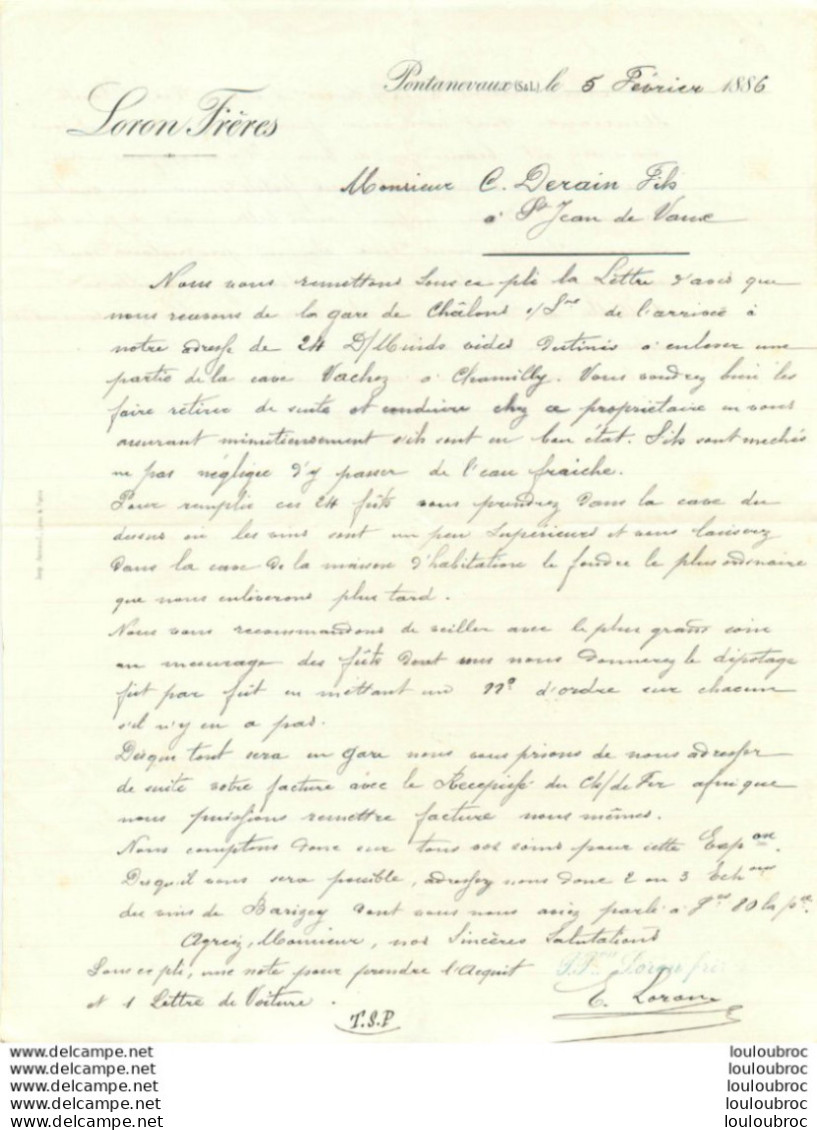 Pontanevaux (S&L) le 5 Février 1886
Loron Frères
Monsieur C. Derain Fils
à St Jean de Vaux
Nous vous remettons sous ce pli la Lettre d'avis que
nous recevons de la gare de Châlons s/Sne de l'arrivée à
notre adresse de 24 D/Muids vides destinés à enlever une
partie de la cave Vachez à Chamilly. Vous voudrez bien les
faire retirer de suite et conduire chez ce propriétaire en vous
assurant minutieusement s'ils sont en bon état. S'ils sont mechés
ne pas négliger d'y passer de l'eau fraiche.
Pour remplir ces 24 fûts vous prendrez dans la cave du
dessus où les vins sont un peu supérieurs et vous laisserez
dans la cave de la maison d'habitation le foudre le plus ordinaire
que nous enlèverons plus tard.
Nous vous recommandons de veiller avec le plus grand soin
au mesurage des fûts dont vous nous donnerez le dépotage
fût par fût en mettant un No d'ordre sur chacun
s'il n'y en a pas.
Dès que tout sera en gare nous vous prions de nous adresser
de suite votre facture avec le Recepissé du Ch/de Fer afin que
nous puissions remettre facture nous mêmes.
Nous comptons donc sur tous vos soins pour cette Expon.
Dès qu'il vous sera possible, adressez nous donc 2 ou 3 Echons
des vins de Barizey dont vous nous aviez parlé à 80 la pce.
Agréez, Monsieur, nos Sincères Salutations
Sous ce pli, une note pour prendre l'Acquit
Loron frères
et 1 Lettre de Voiture.
E. Loron
T.S.P
www.delcampe.net
www.delcampe.net
www.delcampe.net
www.delcampe.net
www.delcampe.net
louloubroc
louloubroc
louloubroc
louloubroc
louloubroc